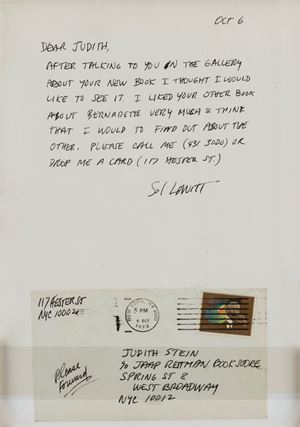 OCT 6
DEAR JUDITH,
AFTER TALKING TO YOU IN THE GALLERY
ABOUT YOUR NEW BOOK I THOUGHT I WOULD
LIKE TO SEE IT. I LIKED YOUR OTHER BOOK
ABOUT BERNADETTE VERY MUCH & THINK
THAT I WOULD TO FIND OUT ABOUT THE
OTHER. PLEASE CALL ME (431 5020) OR
DROP ME A CARD (117 HESTER ST.)
Sol LEWITT
117 HESTER ST
NYC 10002
NEW YORK, N.Y.
5 PM
OCT
1973
Please
Forward
JUDITH STEIN
c/o JAAP RIETMAN BOOKSTORE
SPRING ST &
WEST BROADWAY
NYC 10012